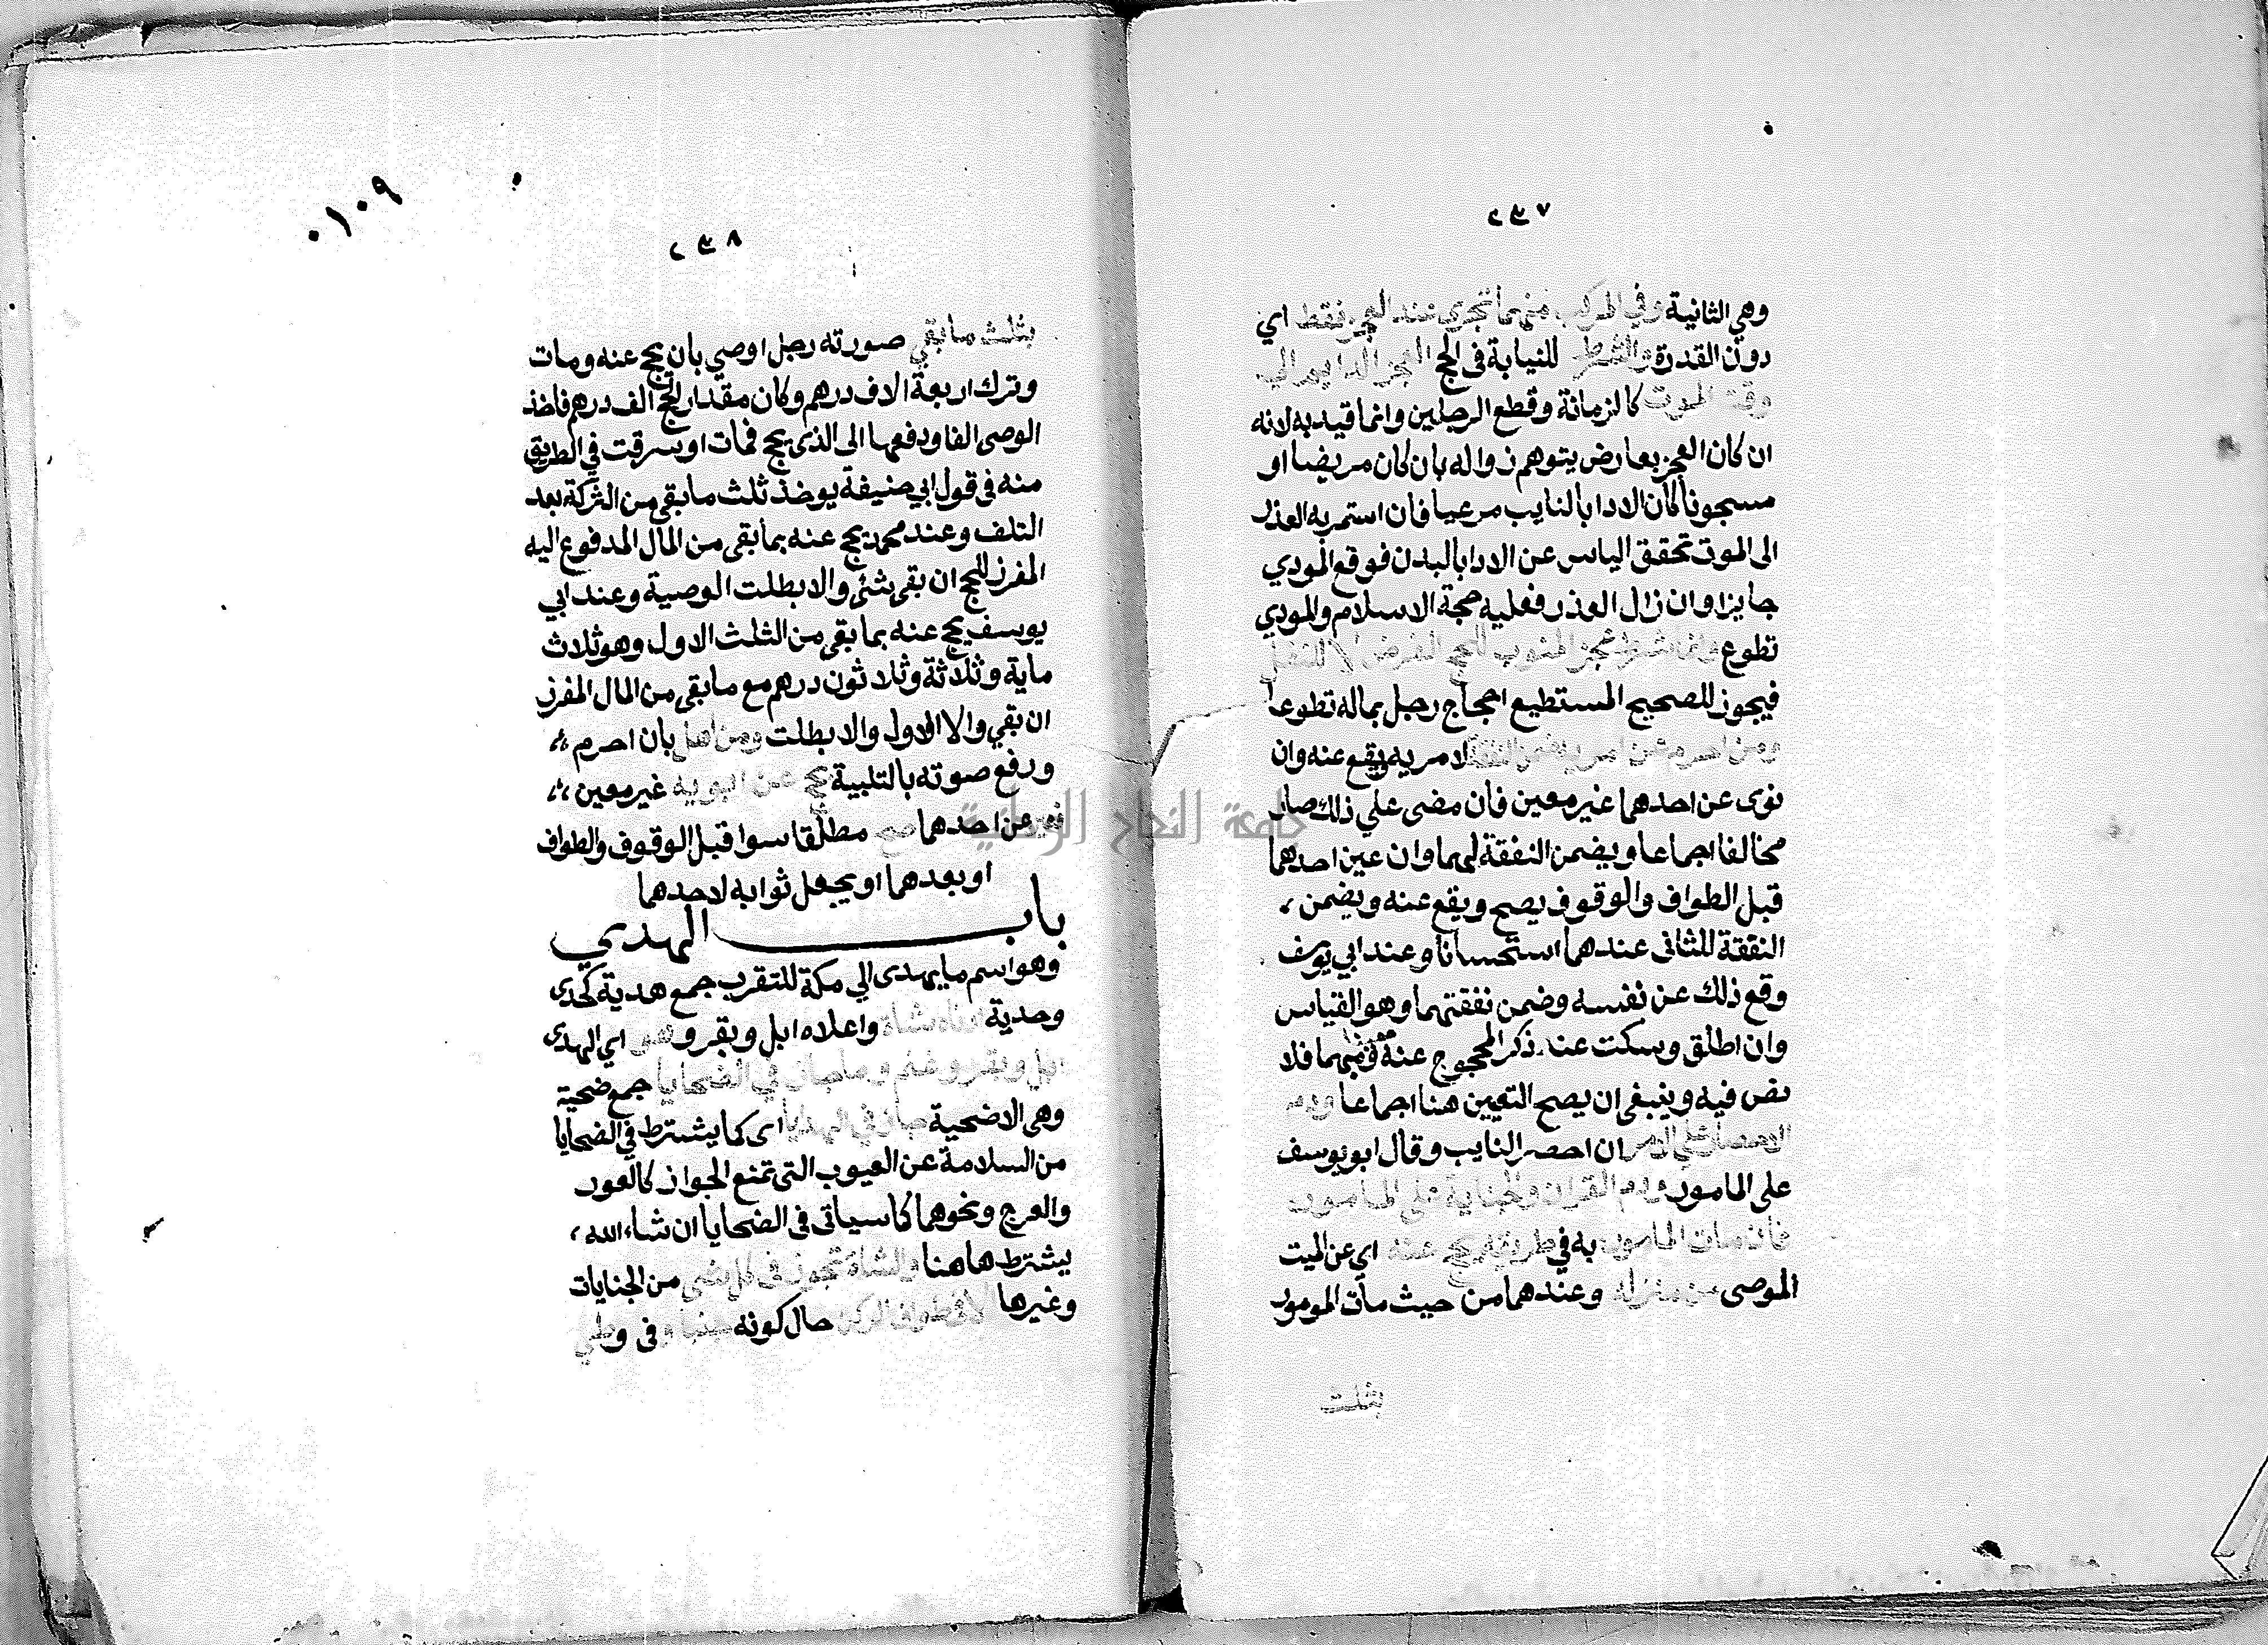 ٢٣٧
وهي الثانية وفي المركب منهما تجري عند العجز فقط اي
دون القدرة والشرط للنيابة في الحج العجز الدايم الي
وقت الموت كالزمانة وقطع الرجلين وانما قيد به لانه
ان كان العجز بعارض يتوهم زواله بان كان مريضا او
مسجونا كان الادا بالنايب مرعيا فان استمر به العذر
الى الموت تحقق الياس عن الادا بالبدن فوقع المودي
جايزا وان زال العذر فعليه حجة الاسلام والمودي
تطوع وانما شرط عجز المنوب للحج الفرض لا للنفل
فيجوز للصحيح المستطيع احجاج رجل بماله تطوعا
ومن احرم عن امريه ضمن النفقة لامريه ويقع عنه وان
نوى عن احدهما غير معين فان مضى علي ذلك صار
مخالفا اجماعا ويضمن النفقة لهما وان عين احدهما
قبل الطواف والوقوف يصح ويقع عنه ويضمن
النفقة للثاني عندهما استحسانا وعند ابي يوسف
وقع ذلك عن نفسه وضمن نفقتهما وهو القياس
وان اطلق وسكت عند ذكر المحجوج عنه فيهما فلا
نص فيه وينبغي ان يصح التعيين هنا اجماعا ودم
الاحصار علي الامر ان احصر النايب وقال ابو يوسف
على المامور ودم القران والجناية على المامور
فان مات المامور به في طريقه يحج عنه اي عن الميت
الموصى من منزله وعندهما من حيث مات المومور
بثلث
٠١٠٩
٢٣٨
بثلث ما بقي صورته رجل اوصي بان يحج عنه ومات
وترك اربعة الاف درهم وكان مقدار الحج الف درهم فاخذ
الوصى الفا ودفعها الى الذى يحج فمات او سرقت في الطريق
منه في قول ابي حنيفة يوخذ ثلث ما بقي من التركة بعد
التلف وعند محمد يحج عنه بما بقى من المال المدفوع اليه
المفرز للحج ان بقى شئ والا بطلت الوصية وعند ابي
يوسف يحج عنه بما بقى من الثلث الاول وهو ثلاث
ماية وثلاثة وثلاثون درهم مع ما بقى من المال المفرز
ان بقي والا الاول والا بطلت ومن اهل بان احرم
ورفع صوته بالتلبية بحج عن ابويه غير معين
عن احدهما صح مطلقا سوا قبل الوقوف والطواف
او بعدهما او يجعل ثوابه لاحدهما
باب الهدي
وهو اسم ما يهدى الي مكة للتقرب جمع هدية كجدى
وجدية ادناه شاة واعلاه ابل وبقر وهو اي الهدى
ابل وبقر وغنم وما جاز في الضحايا جمع ضحية
وهي الاضحية جاز في الهدايا اى كما يشترط في الضحايا
من السلامة عن العيوب التى تمنع الجواز كالعور
والعرج ونحوهما كما سياتى في الضحايا ان شاء الله
يشترط هاهنا والشاة تجوز في كل شي من الجنايات
وغيرها الا في طواف الركن حال كونه جنبا وفى وطي